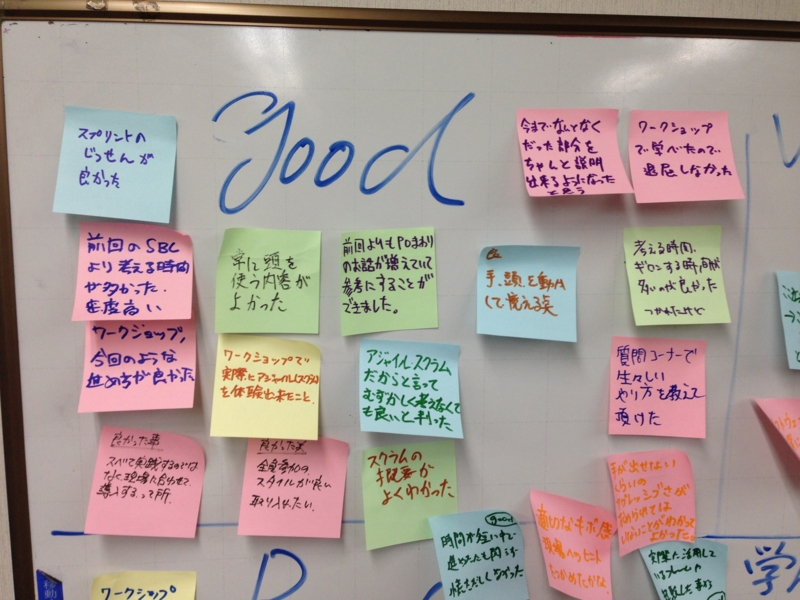 good
スプリントの
じっせんが
良かった
今まで、なんとなく
だった部分を
ちゃんと説明
出来るようになった
と思う
ワークショップ
で学べたので
退屈しなかった
前回のSBC
より考える時間
が多かった.
密度高い
常に頭を
使う内容が
よかった
前回よりもPOまわり
のお話が増えていて
参考にすることが
できました。
手、頭を動か
して覚える点
考える時間.
ギロンする時間が
多いのは良かった
つかれたけど
ワークショップ,
今回のような
進め方が良かった
ワークショップで
実際にアジャイルスクラム
を体験出来たこと.
アジャイルスクラム
だからと言って
むずかしく考えなくて
も良いと判った
質問コーナーで
生々しい
やり方を教えて
頂けた
良かった事
スベて実践するのでは
なく、現場に合わせて
導入するって所.
良かった点
全員参加の
スタイルが良い
取り入れたい.
スクラムの
概要が
よくわかった
good
時間が短い中で
進めたにも関らず
慌ただしくなかった
適切なキボ感
現場へのヒント
をつかめたかな
手が出せない
くらいの
アグレッシブさが
求められては
ないことがわかって
よかった。
実際に活用して
ワークショップ
学